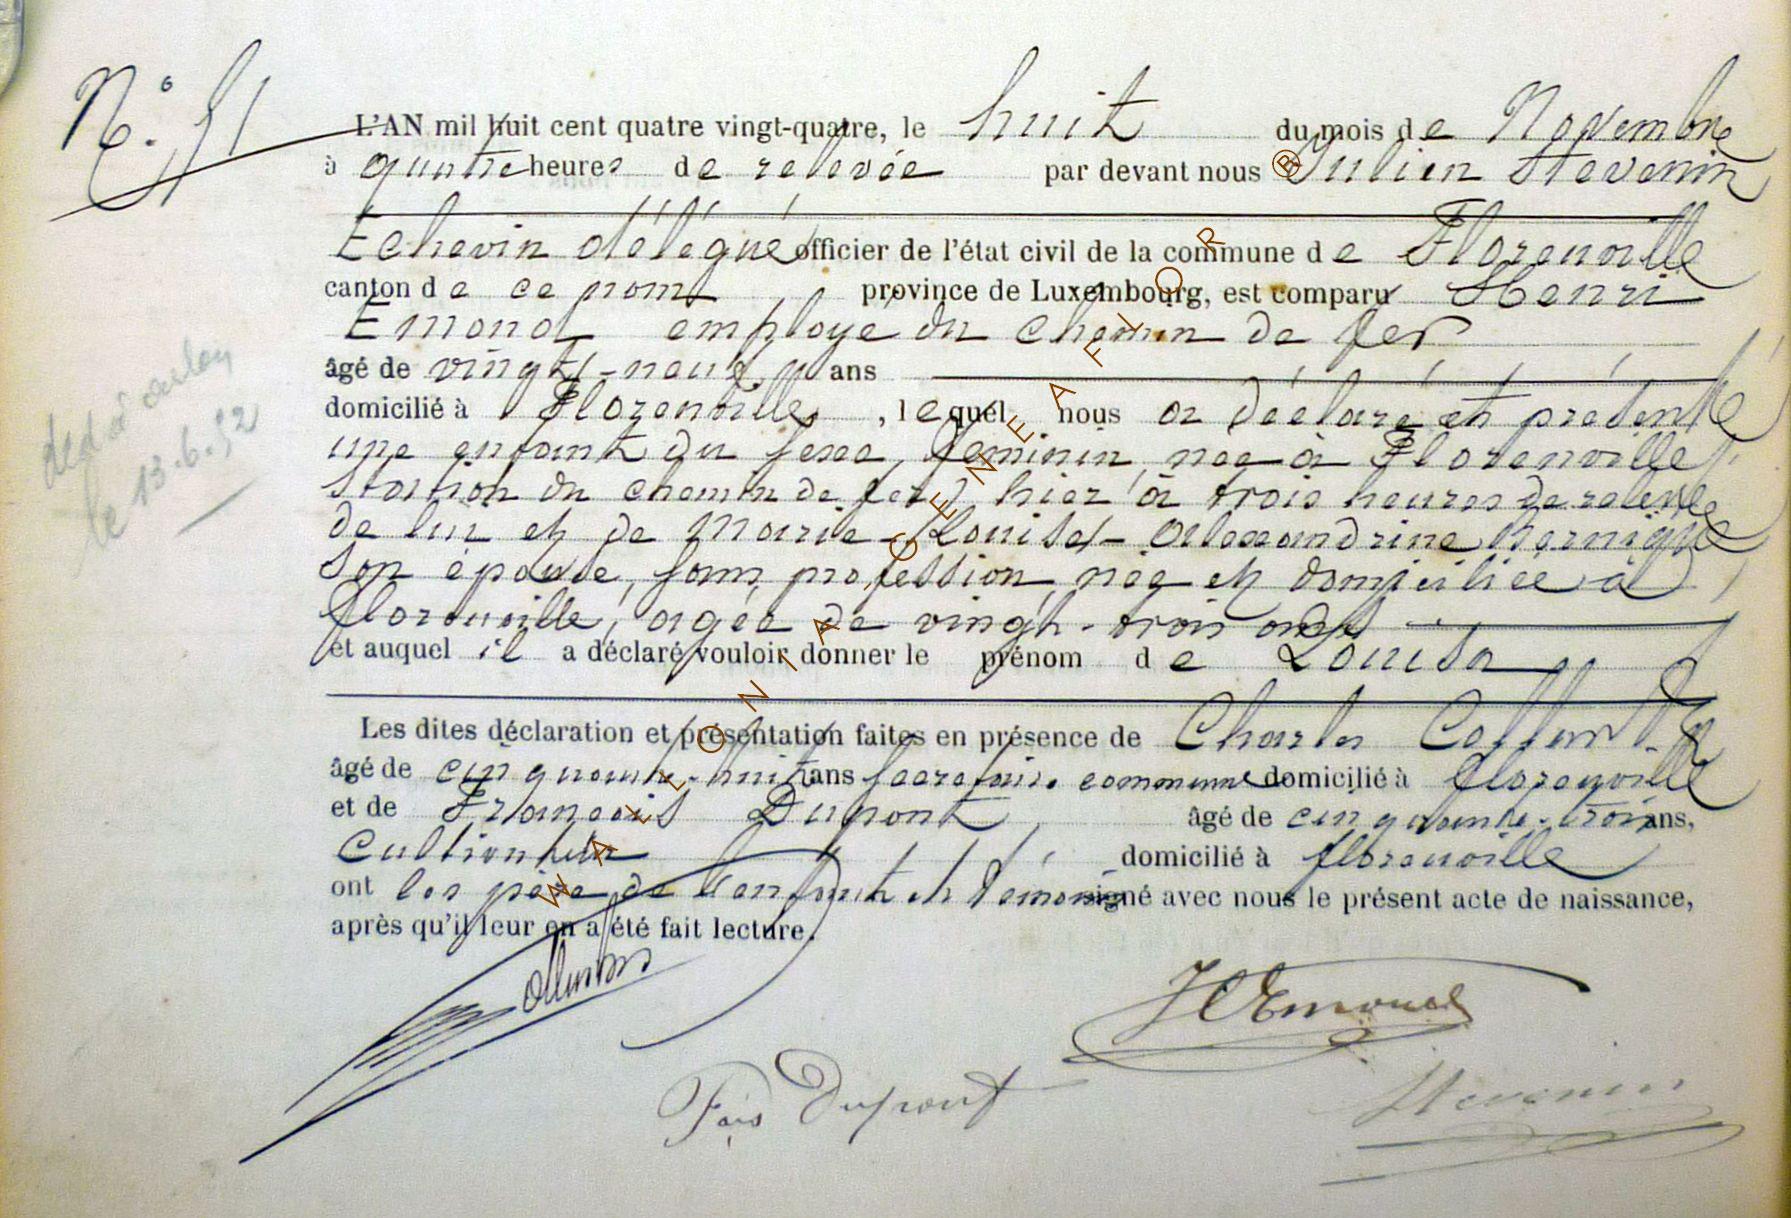 N° 51
L'AN mil huit cent quatre vingt-quatre, le huit du mois de Novembre
à quatre heures de relevée par devant nous Julien Stevenin
Echevin délégué officier de l'état civil de la commune de Florenville
canton de ce nom, province de Luxembourg, est comparu Henri
Emond employé du chemin de fer
âgé de vingt-neuf ans
domicilié à Florenville, lequel nous a déclaré et présenté
une enfant du sexe féminin, née à Florenville,
station du chemin de fer, hier à trois heures de relevée
de lui et de Marie-Louise-Alexandrine
son épouse, sans profession, née et domiciliée à
Florenville, agée de vingt-trois ans
et auquel il a déclaré vouloir donner le prénom de Louisa
Les dites déclaration et présentation faites en présence de Charles
âgé de cinquante-huit ans Secrétaire communal domicilié à Florenville
et de François Dupont, âgé de cinquante-trois ans,
Cultivateur domicilié à florenville
ont les père de l'enfant et témoins signé avec nous le présent acte de naissance,
après qu'il leur en a été fait lecture.
HEmond
Fçois Dupont
Stevenin
le 13.6.52
WALLONIA GENEAFLOR ®